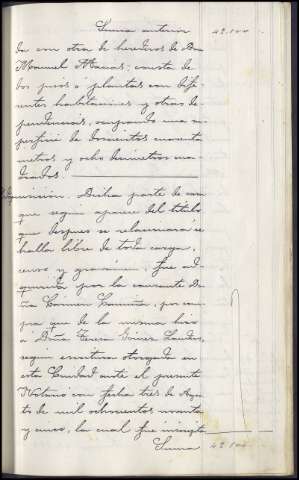 Suma anterior 42.100
da con otra de herederos de Don
Manuel Macías; consta de
dos pisos ó plantas con dife-
rentes habitaciones y otras de-
pendencias, ocupando una su-
perficie de doscientos cuarenta
metros y ocho decímetros cua-
drados.
Adquisición. Dicha parte de casa
que según aparece del título
que después se relacionará se
halla libre de toda carga,
censo y gravamen, fue ad-
quirida por la causante Do-
ña Carmen por com-
pra que de la misma hizo
á Doña Teresa Gómez
según escritura otorgada en
esta Ciudad ante el presente
Notario con fecha tres de Agos-
to de mil ochocientos noventa
y cinco, la cual fue inscripta
Suma 42.100